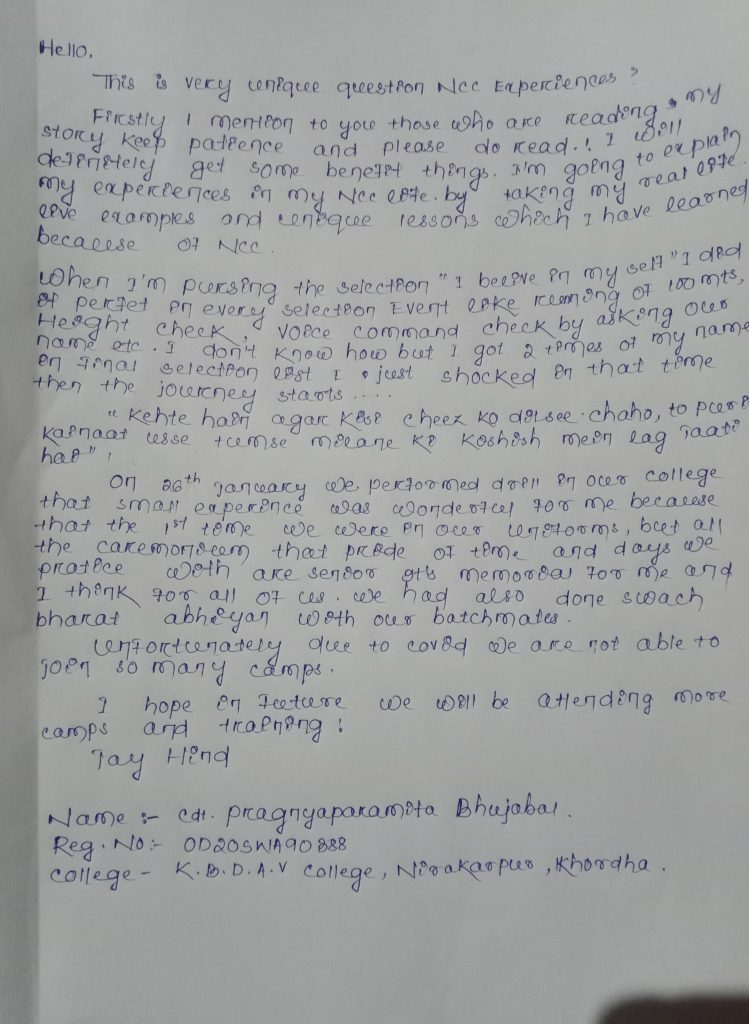 Hello,
This is very unique question Ncc Experiences?
Firstly I mention to you those who are reading my
story keep patience and please do read.! I will
definetely get some benefit things. I'm going to explain
my experiences in my Ncc life. by taking my real life.
live examples and unique lessons which I have learned
because of Ncc.
When I'm pursing the selection "I belive in my self" I did
it perfet in every selection Event like running of 100 mts,
Height check, voice command check by asking our
name etc. I don't know how but I got 2 times of my name
in final selection list I just shocked in that time
then the journey starts ....
"Kehte hain agar kisi cheez ko dilsee chaho, to puri
kainaat usse tumse milane ki koshish mein lag jaati
hai",
On 26th january we performed drill in our college
that small experince was wonderful for me because
that the 1st time we were in our uniforms, but all
the caremonium that pride of time and days we
pratice with are senior its memorial for me and
I think for all of us. we had also done swach
bharat abhiyan with our batchmates.
Unfortunately due to covid we are not able to
join so many camps.
I hope in future we will be attending more
camps and training!
Jay Hind
Name :- cdt. Pragnyaparamita Bhujabal.
Reg. No:- OD20SWA90888
college - K.B.D.A.V college, Nirakarpur, Khordha.